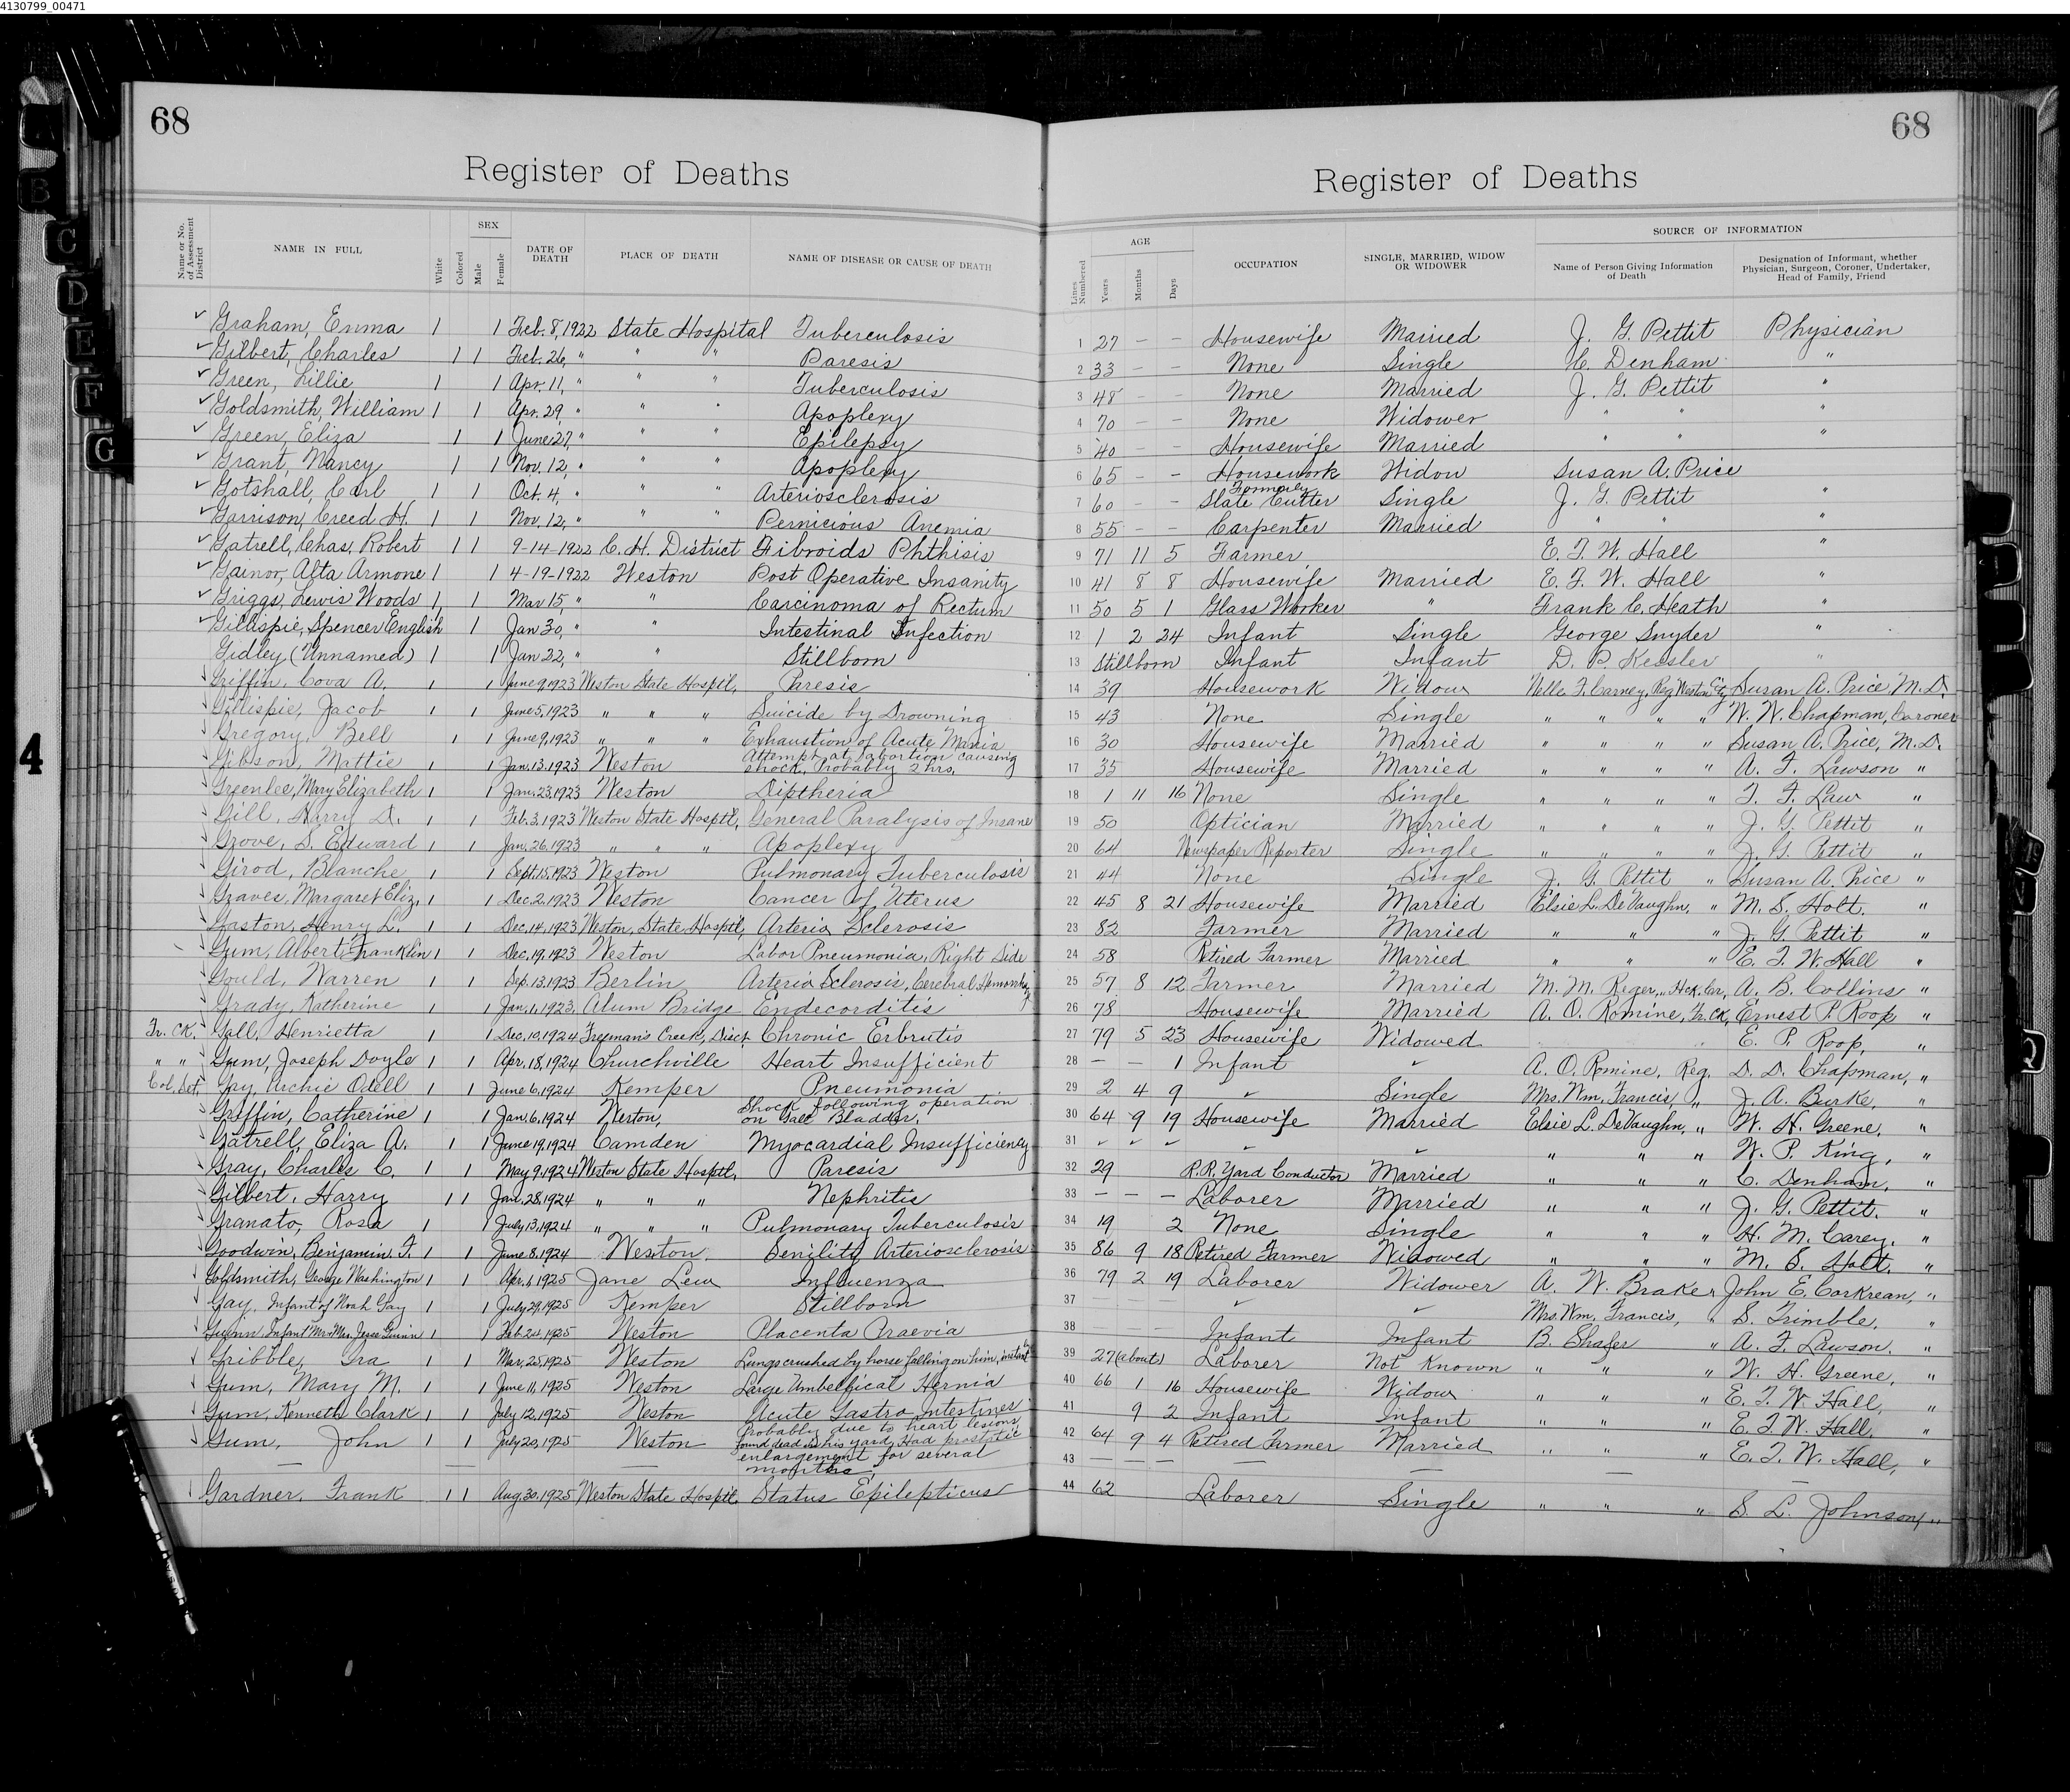 4130799_00471
68
Register of Deaths
Name or No. of Assessment District
NAME IN FULL
White
Colored
SEX
Male
Female
DATE OF DEATH
PLACE OF DEATH
NAME OF DISEASE OR CAUSE OF DEATH
Graham, Emma 1 1 Feb. 8, 1922 State Hospital Tuberculosis
Gilbert, Charles 1 1 Feb. 26, " " " Paresis
Green, Lillie 1 1 Apr. 11, " " " Tuberculosis
Goldsmith, William 1 1 Apr. 29, " " " Apoplexy
Green, Eliza 1 1 June 27, " " " Epilepsy
Grant, Nancy 1 1 Nov. 12, " " " Apoplexy
Gotshall, Carl 1 1 Oct. 4, " " " Arteriosclerosis
Garrison, Creed H. 1 1 Nov. 12, " " " Pernicious Anemia
Gatrell, Chas. Robert 1 1 9-14-1922 C. H. District Fibroids Phthisis
Gainor, Alta Armone 1 1 4-19-1922 Weston Post Operative Insanity
Griggs, Lewis Woods 1 1 Mar 15, " " Carcinoma of Rectum
Gillispie, Spencer English 1 Jan 30, " " Intestinal Infection
Gidley (Unnamed) 1 1 Jan 22, " " Stillborn
Griffin, Cova A. 1 1 June 9, 1923 Weston State Hosptl. Paresis
Gillispie, Jacob 1 1 June 5, 1923 " " " Suicide by Drowning
Gregory, Bell 1 1 June 9, 1923 " " " Exhaustion of Acute Mania
Gibson, Mattie 1 1 Jan. 13, 1923 Weston Attempt at abortion causing shock. Probably 2 hrs.
Greenlee, Mary Elizabeth 1 1 Jan. 23, 1923 Weston Diptheria
Gill, Harry D. 1 1 Feb. 3, 1923 Weston State Hosptl, General Paralysis of Insane
Grove, S. Edward 1 1 Jan. 26, 1923 " " " Apoplexy
Girod, Blanche 1 1 Sept. 15, 1923 Weston Pulmonary Tuberculosis
Graves, Margaret Eliz. 1 1 Dec. 2, 1923 Weston Cancer of Uterus
Gaston, Henry L. 1 1 Dec. 14, 1923 Weston, State Hosptl, Arterio Sclerosis
Gum, Albert Franklin 1 1 Dec. 19, 1923 Weston Labor Pneumonia, Right Side
Gould, Warren 1 1 Sep. 13, 1923 Berlin Arterio Sclerosis, Cerebral
Grady, Katherine 1 1 Jan. 1, 1923, Alum Bridge Endecorditis
Fr. Ck. Gall, Henrietta 1 1 Dec. 10, 1924 Freeman's Creek, Dist Chronic Erbrutis
" " Gum, Joseph Doyle 1 1 Apr. 18, 1924 Churchville Heart Insufficient
Col. Set. Gay, Archie Odell 1 1 June 6, 1924 Kemper Pneumonia
Griffin, Catherine 1 1 Jan. 6, 1924 Weston, Shock following operation on Gall Bladder.
Gatrell, Eliza A. 1 1 June 19, 1924 Camden Myocardial Insufficiency
Gray, Charles C. 1 1 May 9, 1924 Weston State Hosptl. Paresis
Gilbert, Harry 1 1 Jan. 28, 1924 " " " Nephritis
Granato, Rosa 1 1 July 13, 1924 " " " Pulmonary Tuberculosis
Goodwin, Benjamin F. 1 1 June 8, 1924 Weston. Senility Arteriosclerosis
Goldsmith, George Washington 1 1 Apr. 1, 1925 Jane Lew Influenza
Gay, Infant of Noah Gay 1 1 July 29, 1925 Kemper Stillborn
Guinn, Infant Mr & Mrs. Jesse Guinn 1 1 Feb. 24, 1925 Weston Placenta Praevia
Gribble, Ira 1 1 Mar. 25, 1925 Weston Lungs crushed by horse falling on him, instant
Gum, Mary M. 1 1 June 11, 1925 Weston Large Umbelfical Hernia
Gum, Kenneth Clark 1 1 July 12, 1925 Weston Acute Gastro Intestines
Gum, John 1 1 July 20, 1925 Weston Probably due to heart lesions, found dead in his yard, Had prostatic enlargement for several months.
Gardner, Frank 1 1 Aug. 30, 1925 Weston State Hosptl. Status Epilepticus
68
Register of Deaths
Lines Numbered
AGE
Years
Months
Days
OCCUPATION
SINGLE, MARRIED, WIDOW OR WIDOWER
SOURCE OF INFORMATION
Name of Person Giving Information of Death
Designation of Informant, whether Physician, Surgeon, Coroner, Undertaker, Head of Family, Friend
1 27 — — Housewife Married J. G. Pettit Physician
2 33 — — None Single C. Denham "
3 48 — — None Married J. G. Pettit "
4 70 — — None Widower " " "
5 40 — — Housewife Married " " "
6 65 — — Housework Widow Susan A. Price
7 60 — — Formerly Slate Cutter Single J. G. Pettit "
8 55 — — Carpenter Married " " "
9 71 11 5 Farmer E. T. W. Hall "
10 41 8 8 Housewife Married E. T. W. Hall "
11 50 5 1 Glass Worker " Frank C. Heath "
12 1 2 24 Infant Single George Snyder "
13 Stillborn Infant Infant D. P. Kessler "
14 39 Housework Widow Nelle F. Carney, Reg Weston City Susan A. Price, M.D.
15 43 None Single " " " " W. W. Chapman, Coroner
16 30 Housewife Married " " " " Susan A. Price, M.D.
17 35 Housewife Married " " " " A. F. Lawson "
18 1 11 16 None Single " " " " T. F. Law "
19 50 Optician Married " " " " J. G. Pettit "
20 64 Newspaper Reporter Single " " " " J. G. Pettit "
21 44 None Single J. G. Pettit " Susan A. Price "
22 45 8 21 Housewife Married Elsie L. DeVaughn, " M. S. Holt. "
23 82 Farmer Married " " " J. G. Pettit "
24 58 Retired Farmer Married " " " E. T. W. Hall "
25 57 8 12 Farmer Married M. M. Reger, " Hck. Cr., A. B. Collins "
26 78 Housewife Married A. O. Romine, Fr. Ck, Ernest P. Roop "
27 79 5 23 Housewife Widowed E. P. Roop, "
28 — — 1 Infant ✓ A. O. Romine, Reg. D. D. Chapman, "
29 2 4 9 ✓ Single Mrs. Wm. Francis " J. A. Burke, "
30 64 9 19 Housewife Married Elsie L. DeVaughn, " W. H. Greene, "
31 ✓ ✓ ✓ ✓ ✓ " " " W. P. King, "
32 29 R.R. Yard Conductor Married " " " C. Denham, "
33 — — — Laborer Married " " " J. G. Pettit. "
34 19 2 None Single " " " H. M. Carey. "
35 86 9 18 Retired Farmer Widowed " " " M. S. Holt. "
36 79 2 19 Laborer Widower A. W. Brake, John E. Corkrean, "
37 — — — ✓ ✓ Mrs. Wm. Francis, " S. Trimble, "
38 — — — Infant Infant B. Shafer " A. F. Lawson. "
39 27 (about) Laborer Not Known " " " W. H. Greene, "
40 66 1 16 Housewife Widow " " " E. T. W. Hall, "
41 9 2 Infant Infant " " " E. T. W. Hall, "
42 64 9 4 Retired Farmer Married " " " E. T. W. Hall, "
43 — — — — — — —
44 62 Laborer Single " " " S. L. Johnson, "
B
C
D
E
F
G
4